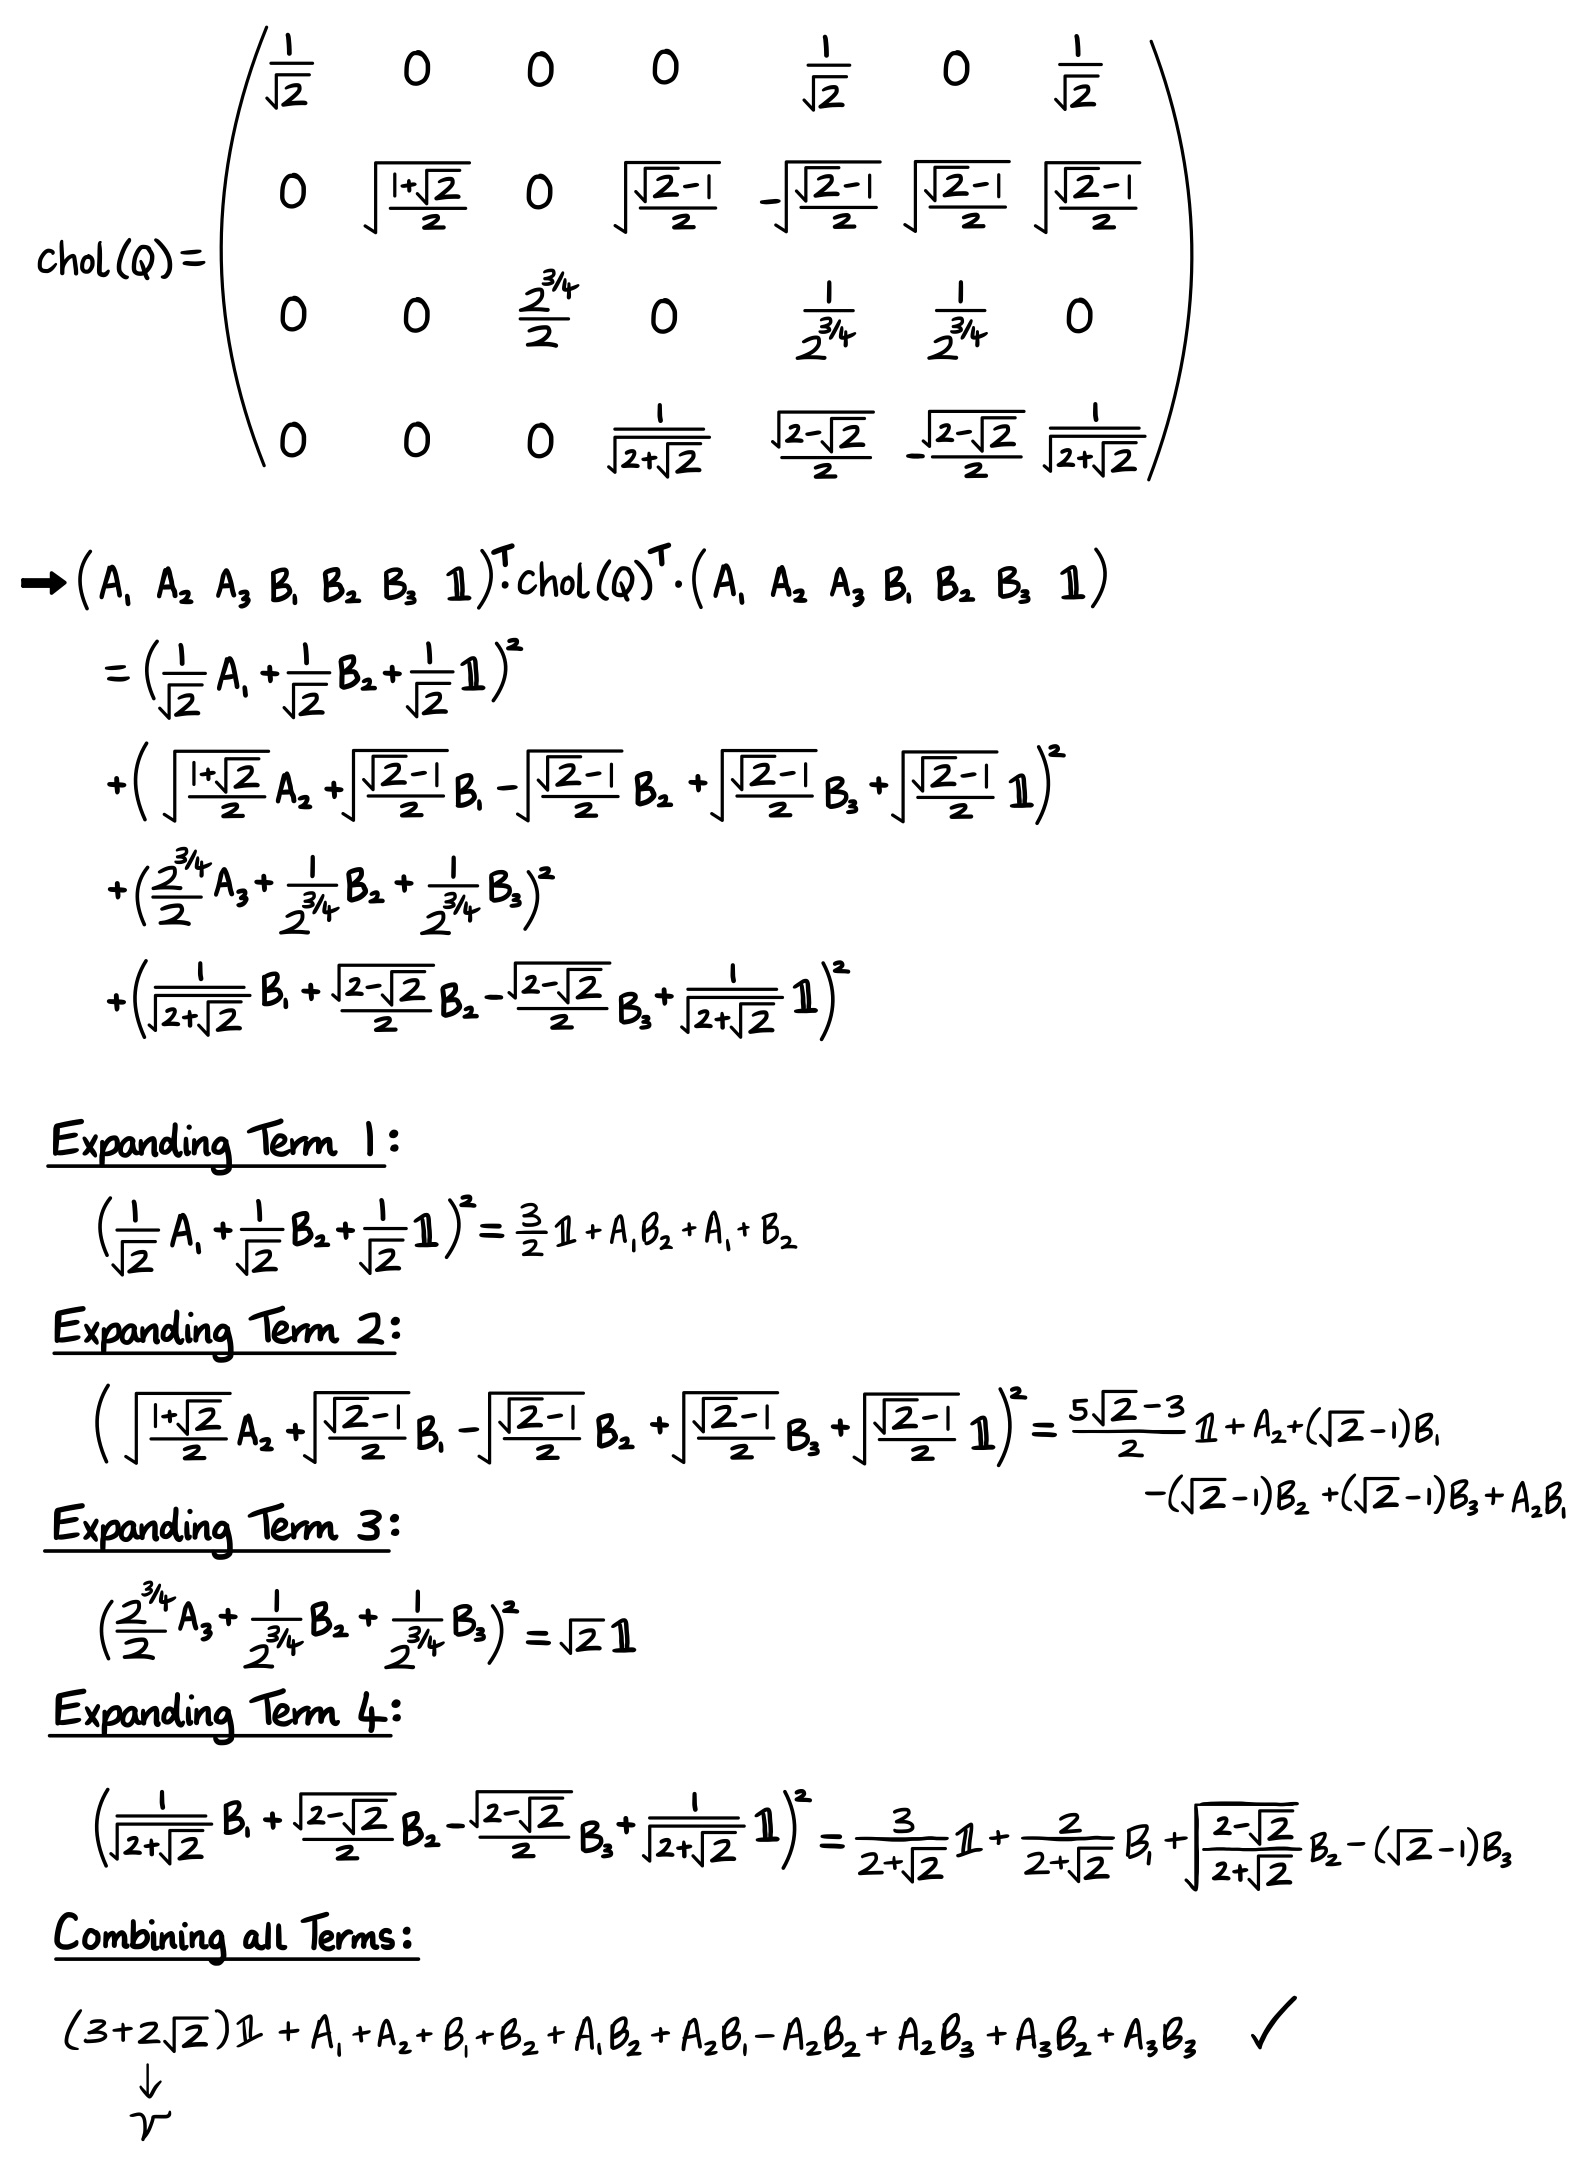 chol(Q) = ( 1/√2 0 0 0 1/√2 0 1/√2
0 √((1+√2)/2) 0 √((√2-1)/2) -√((√2-1)/2) √((√2-1)/2) √((√2-1)/2)
0 0 2^(3/4)/2 0 1/2^(3/4) 1/2^(3/4) 0
0 0 0 1/√(2+√2) √(2-√2)/2 -√(2-√2)/2 1/√(2+√2) )
→ (A₁ A₂ A₃ B₁ B₂ B₃ 𝟙)ᵀ · chol(Q)ᵀ · (A₁ A₂ A₃ B₁ B₂ B₃ 𝟙)
= (1/√2 A₁ + 1/√2 B₂ + 1/√2 𝟙)²
+ (√((1+√2)/2) A₂ + √((√2-1)/2) B₁ - √((√2-1)/2) B₂ + √((√2-1)/2) B₃ + √((√2-1)/2) 𝟙)²
+ (2^(3/4)/2 A₃ + 1/2^(3/4) B₂ + 1/2^(3/4) B₃)²
+ (1/√(2+√2) B₁ + √(2-√2)/2 B₂ - √(2-√2)/2 B₃ + 1/√(2+√2) 𝟙)²
Expanding Term 1:
(1/√2 A₁ + 1/√2 B₂ + 1/√2 𝟙)² = 3/2 𝟙 + A₁B₂ + A₁ + B₂
Expanding Term 2:
(√((1+√2)/2) A₂ + √((√2-1)/2) B₁ - √((√2-1)/2) B₂ + √((√2-1)/2) B₃ + √((√2-1)/2) 𝟙)² = (5√2-3)/2 𝟙 + A₂ + (√2-1)B₁
-(√2-1)B₂ + (√2-1)B₃ + A₂B₁
Expanding Term 3:
(2^(3/4)/2 A₃ + 1/2^(3/4) B₂ + 1/2^(3/4) B₃)² = √2 𝟙
Expanding Term 4:
(1/√(2+√2) B₁ + √(2-√2)/2 B₂ - √(2-√2)/2 B₃ + 1/√(2+√2) 𝟙)² = 3/(2+√2) 𝟙 + 2/(2+√2) B₁ + √((2-√2)/(2+√2)) B₂ - (√2-1)B₃
Combining all Terms:
(3+2√2)𝟙 + A₁ + A₂ + B₁ + B₂ + A₁B₂ + A₂B₁ - A₂B₂ + A₂B₃ + A₃B₂ + A₃B₃ ✓
↓